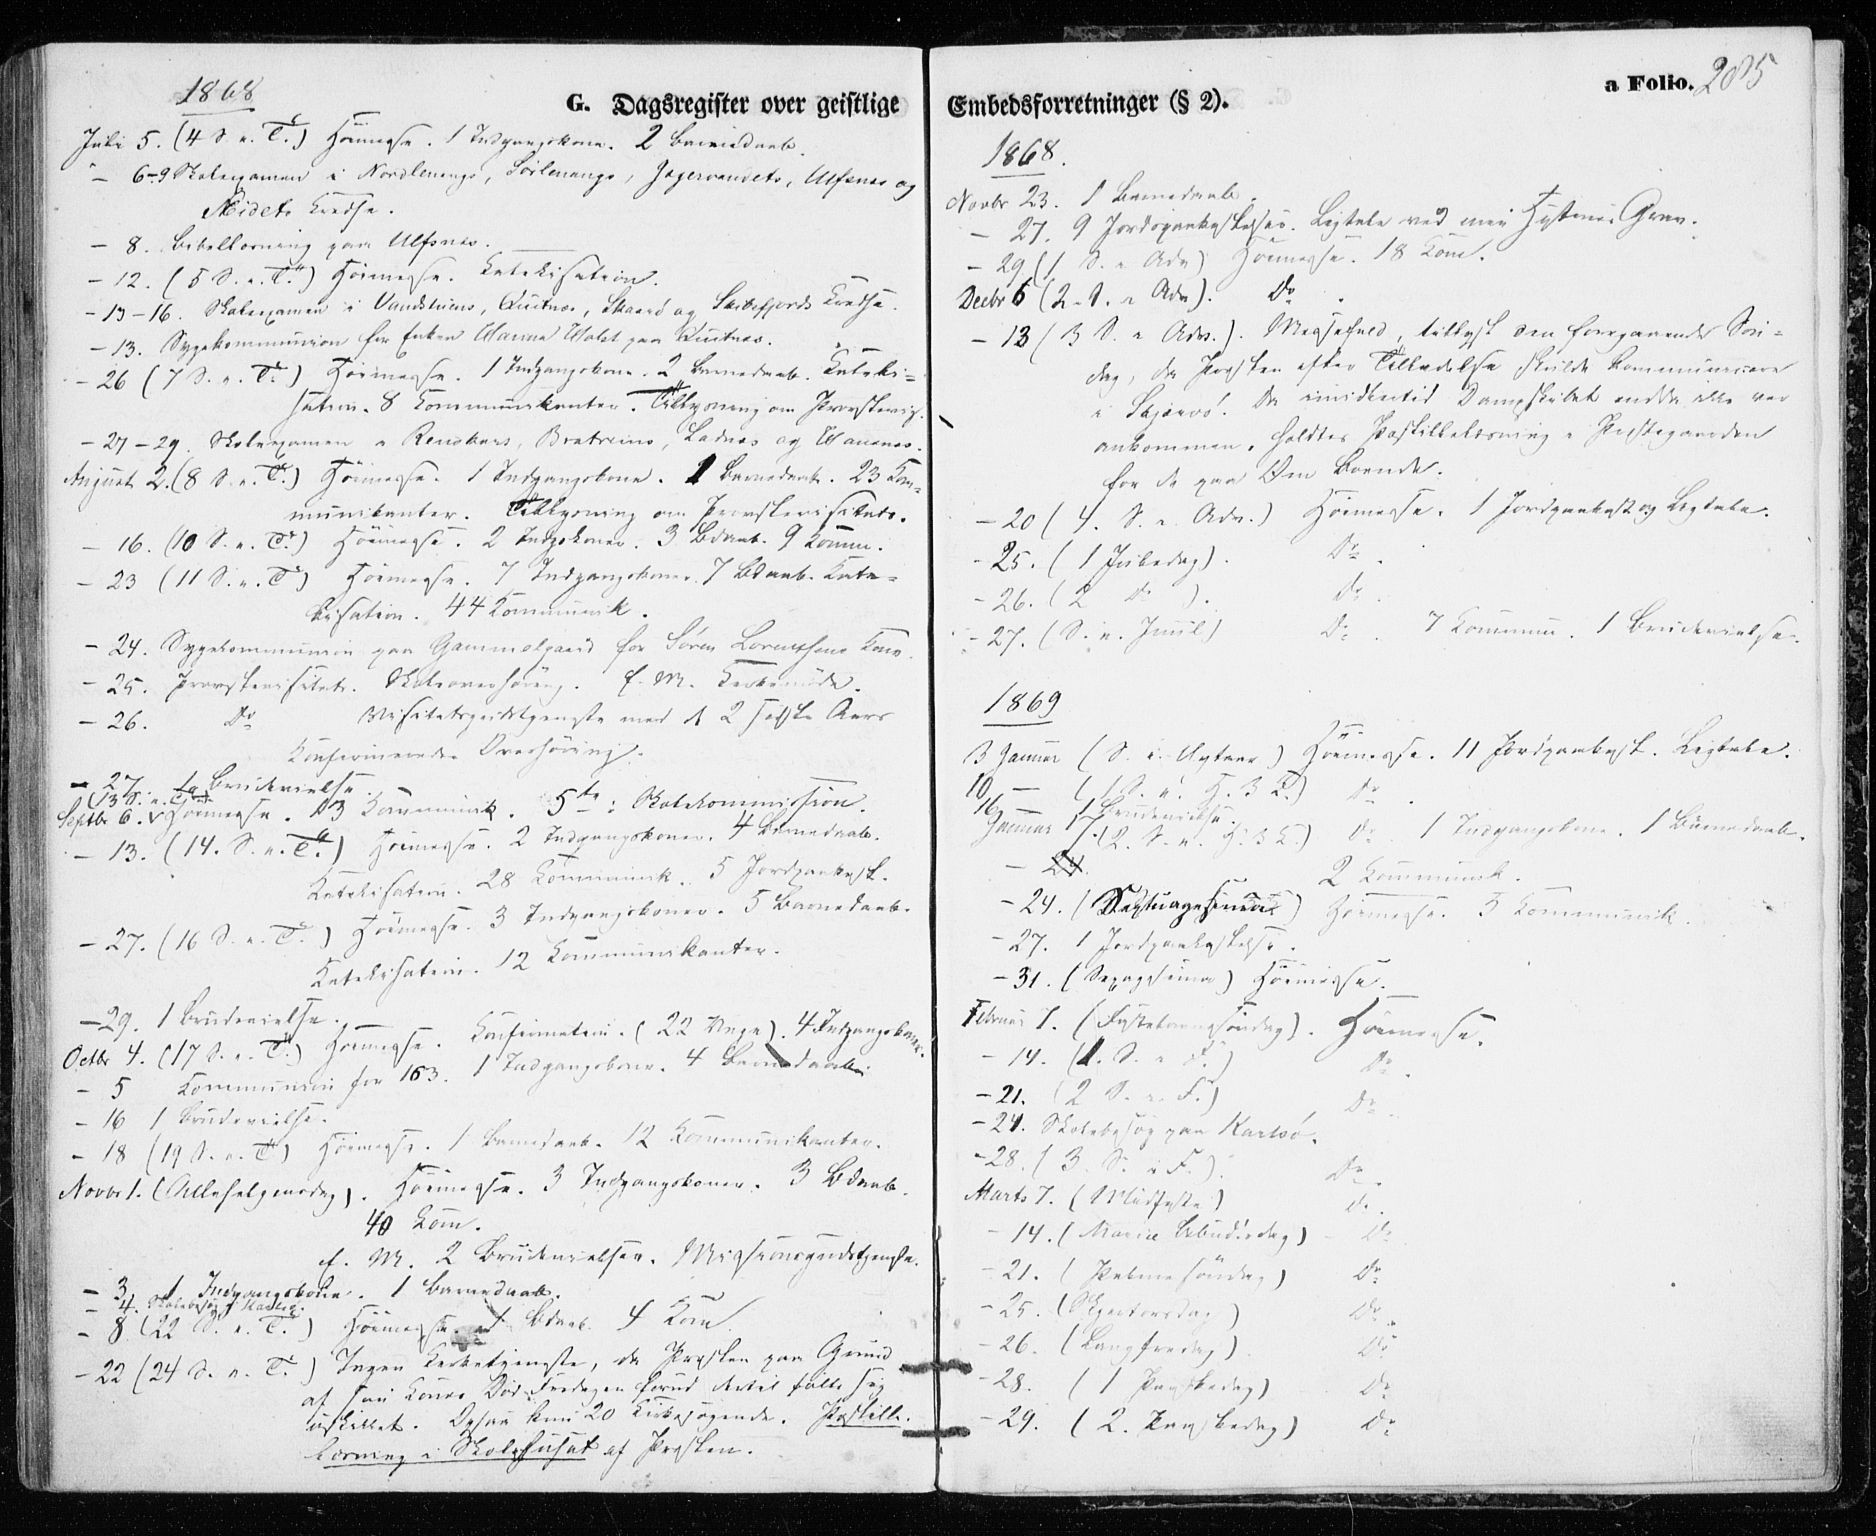 1868
G. Dagsregister over geistlige
Juli 5. (4 S. e. Tr.) Höimesse. 1 Indgangskone. 2 Barnedaab.
– 6-9 Skoleexamen i Nordlenangs, Sörlenangs, Jægervandets, Ulfsnes og
Kredse.
– 8. Bibellæsning paa Ulfsnes.
– 12. (5 S. e. Tr.) Höimesse. Katekisation.
– 13–16. Skoleexamen i Vandstuens, Quitnes, Skaarö og Kredse.
– 13. Sygekommunion for Enken Hanna paa Quitnes.
– 26 (7 S. e. Tr.) Höimesse. 1 Indgangskone. 2 Barnedaab. Kateki=
sation. 8 Kommunikanter. Tillysning om Provstevis.
– 27–29. Skoleexamen i Renskars, Bratreins, Ladnes og Hansnes.
August 2. (8 S. e. Tr.) Höimesse. 1 Indgangskone. 1 Barnedaab. 23 Kom=
munikanter. Tillysning om Provstevisitats.
– 16. (10 S. e. Tr.) Höimesse. 2 Indgskoner. 3 Bdaab. 9 Komm.
– 23 (11 S. e. Tr.) Höimesse. 7 Indgangskoner. 7 Bdaab. Kate=
kisation. 44 Kommunik.
– 24. Sygekommunion paa Gammelgaard for Sören Lorentsens Kone.
– 25. Provstevisitats. Skoleoverhöring. E. M. Kirkemöde.
– 26. Do Visitatsgudstjeneste med de 2 sidste Aars
Konfirmerede. Overhöring.
– 27. 1 Brudevielse.
(13 S. e. Tr.)
Septbr 6. Höimesse. 13 Kommunik. 5te: Skolekommission.
– 13. (14. S. e. Tr.) Höimesse. 2 Indgangskoner. 4 Barnedaab.
Katekisation. 28 Kommunik. 5 Jordpaakast.
– 27. (16 S. e. Tr.) Höimesse. 3 Indgangskoner. 5 Barnedaab.
Katekisation. 12 Kommunikanter.
– 29. 1 Brudevielse.
Octbr 4. (17 S. e. Tr.) Höimesse. Konfirmation. (22 Unge). 4 Indgangskoner.
– 5 Kommunion for 163. 1 Indgangskone. 4 Barnedaab.
– 16 1 Brudevielse.
– 18 (19 S. e. Tr.) Höimesse. 1 Barnedaab. 12 Kommunikanter.
Novbr 1. (Allehelgensdag). Höimesse. 3 Indgangskoner. 3 Bdaab.
40 Kom.
E. M. 2 Brudevielser. Missionsgudstjeneste.
– 3. 1 Indgangskone. 1 Barnedaab.
– 4. Skolebesög i Karlsö.
– 8. (22 S. e. Tr.) Höimesse. 1 Bdaab. 4 Kom.
– 22 (24 S. e. Tr.) Ingen Kirketjeneste, da Præsten paa Grund
af sin Kones Död Fredagen forud dertil fölte sig
uskikket. Ogsaa kun 20 Kirkesögende. Postille-
læsning i Skolehuset af Præsten.
Embedsforretninger (§ 2).
a Folio. 205
1868.
Novbr 23. 1 Barnedaab.
– 27. 9 Jordspaakastelser. Ligtale ved min Hustrues Grav.
– 29 (1 S. e Adv) Höimesse. 18 Kom.
Decbr 6 (2. S. e Adv). Do.
– 13 (3 S. e Adv.). Messefald, tillyst den foregaaende Sön=
dag, da Præsten efter Tilladelse skulde kommunicere
i Skjærvö. Da imidlertid Dampskibet endda ikke var
ankommen, holdtes Postillelæsning i Præstegaarden
for de paa Öen Boende.
– 20 (4. S. e. Adv.) Höimesse. 1 Jordpaakast og Ligtale.
– 25. (1 Juledag). Do.
– 26. (2 Do ). Do.
– 27. (S. e. Juul) Do. 7 Kommun. 1 Brudevielse.
1869
3 Januar (S. e. Nytaar) Höimesse. 11 Jordpaakast. Ligtale.
10 – (1 S. e. H. 3 K.) Do.
16 – 1 Brudevielse.
Januar 17. (2. S. e. H. 3 K.) Do. 1 Indgangskone. 1 Barnedaab.
– 24. 2 Kommunik.
– 24. (Septuagesima) Höimesse. 5 Kommunik.
– 27. 1 Jordpaakastelse.
– 31. (Sexagesima) Höimesse.
Februar 7. (Fastelavnssöndag). Höimesse.
– 14. (1. S. e F.) Do.
– 21. (2 S. e. F.) Do.
– 24. Skolebesög paa Karlsö.
– 28. (3. S. i F.). Do.
Marts 7. (Midfaste) Do.
– 14. (Mariæ Bebudelsesdag) – Do.
– 21. (Palmesöndag) Do.
– 25. (Skjærtorsdag) Do.
– 26. (Langfredag) Do.
– 28. (1 Paaskedag) Do.
– 29. (2. Paaskedag) Do.